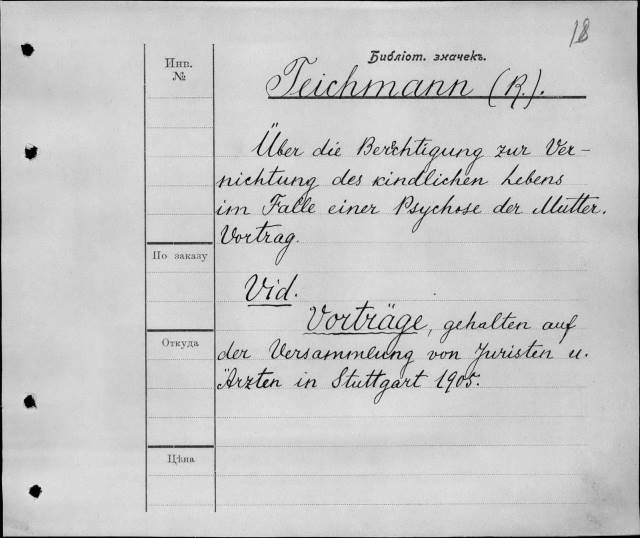 18
Библіот. значекъ.
Инв.
№
Teichmann (R.).
Über die Berechtigung zur Ver-
nichtung des kindlichen Lebens
im Falle einer Psychose der Mutter.
Vortrag.
По заказу
Vid.
Vorträge, gehalten auf
Откуда
der Versammlung von Juristen u.
Ärzten in Stuttgart 1905.
Цѣна